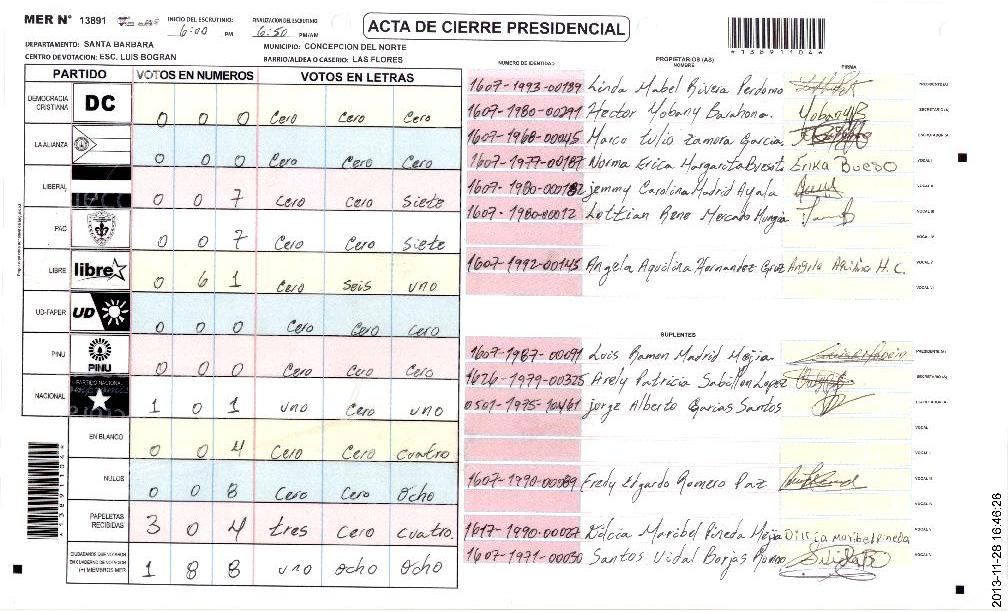 MER N° 13891
INICIO DEL ESCRUTINIO 6:00 PM
FINALIZACION DEL ESCRUTINIO 6:50 PM/AM
ACTA DE CIERRE PRESIDENCIAL
*13891104*
DEPARTAMENTO: SANTA BARBARA
MUNICIPIO: CONCEPCION DEL NORTE
CENTRO DE VOTACION: ESC. LUIS BOGRAN
BARRIO/ALDEA O CASERIO: LAS FLORES
PARTIDO VOTOS EN NUMEROS VOTOS EN LETRAS
DEMOCRACIA CRISTIANA DC 0 0 0 Cero Cero Cero
LA ALIANZA 0 0 0 Cero Cero Cero
LIBERAL 0 0 7 Cero Cero Siete
PAC 0 0 7 Cero Cero Siete
LIBRE libre 0 6 1 Cero Seis uno
UD-FAPER UD 0 0 0 Cero Cero Cero
PINU PINU 0 0 0 Cero Cero Cero
NACIONAL PARTIDO NACIONAL 1 0 1 uno Cero uno
EN BLANCO 0 0 4 Cero Cero cuatro
NULOS 0 0 8 Cero Cero Ocho
PAPELETAS RECIBIDAS 3 0 4 tres Cero cuatro.
CIUDADANOS QUE VOTARON EN CUADERNO DE VOTACION (+) MIEMBROS MER 1 8 8 uno Ocho Ocho
*13891104*
NUMERO DE IDENTIDAD PROPIETARIOS (AS) NOMBRE FIRMA
1607-1993-00189 Linda Mabel Rivera Perdomo PRESIDENTE (A)
1607-1980-00291 Hector Yobany Barahona. YobanyB SECRETARIO (A)
1607-1968-00045 Marco tulio Zamora Garcia ESCRUTADOR (A)
1607-1977-00187 Norma Erica Margarita Erika Bueso VOCAL I
1607-1980-00182 jemmy Carolina Madrid Ayala VOCAL II
1607-1980-0012 Rene Mercado Mungia VOCAL III
VOCAL IV
1607-1992-00145 Angela Aquilina Hernandez Angela Aquilina H. C. VOCAL V
VOCAL VI
SUPLENTES
1607-1987-00091 Luis Ramon Madrid Mejia PRESIDENTE (A)
1626-1979-00325 Arely Patricia Sabillon Lopez SECRETARIO (A)
0501-1975-10461 jorge Alberto Garias Santos ESCRUTADOR (A)
VOCAL
VOCAL I
1607-1990-00089 Fredy Edgardo Romero Paz VOCAL III
VOCAL IV
1617-1990-00027 Dilcia Maribel Pineda Mejia Dilcia maribel Pineda VOCAL V
1607-1971-00030 Santos Vidal Borjas VOCAL VI
2013-11-28 16:46:26